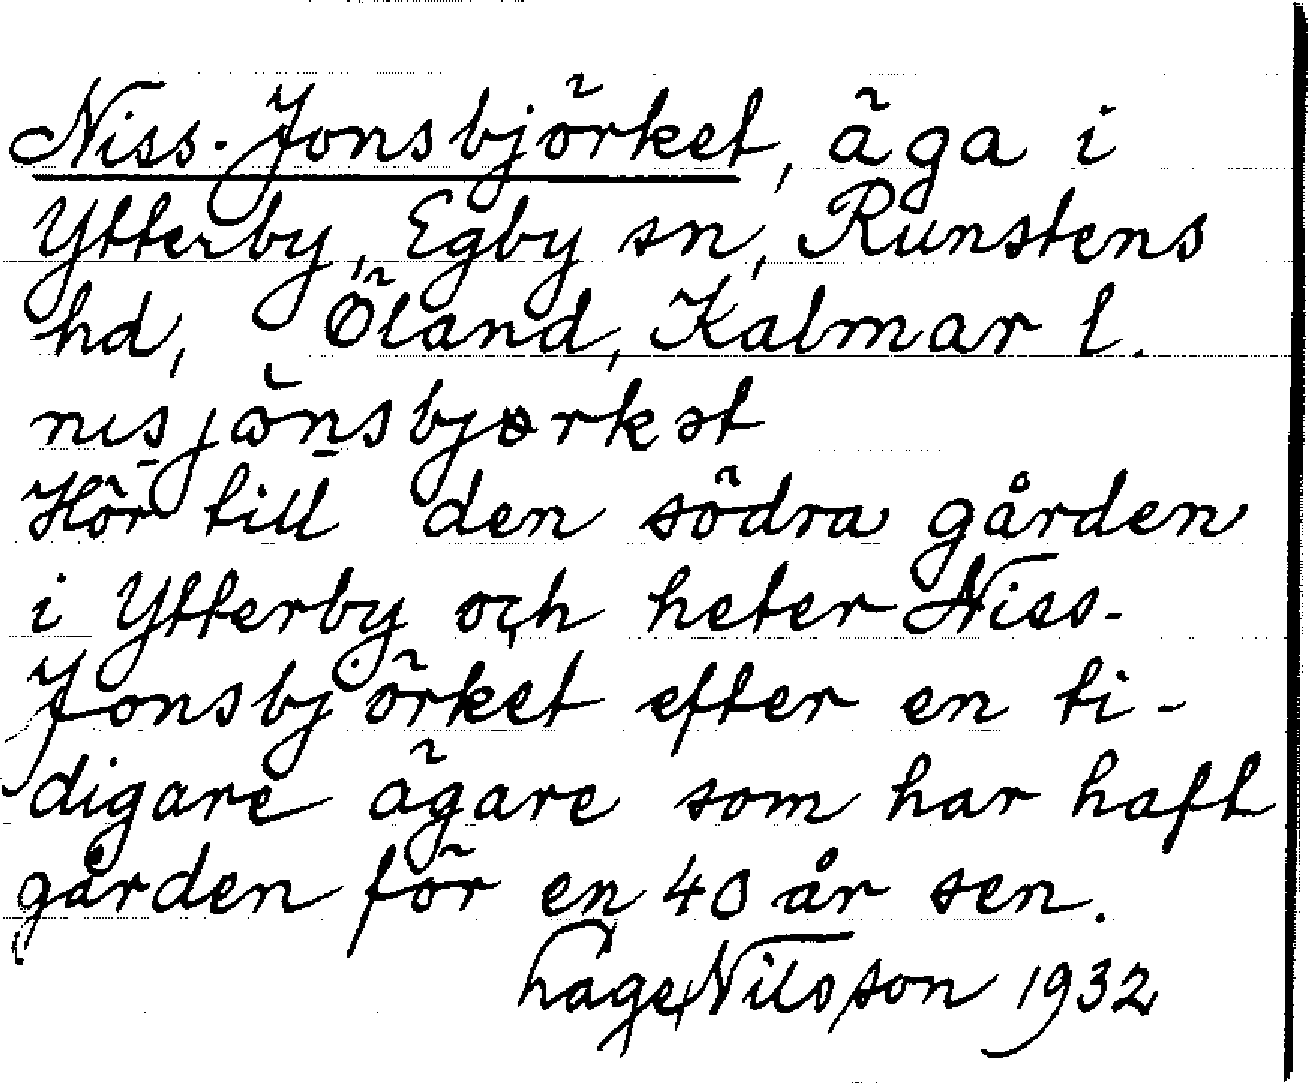 Niss-Jonsbjörket, äga i
Ytterby, Egby sn, Runstens
hd, Öland, Kalmar l.
Hör till den södra gården
i Ytterby och heter Niss-
Jonsbjörket efter en ti-
digare ägare som har haft
gården för en 40 år sen.
Hage Nilsson 1932